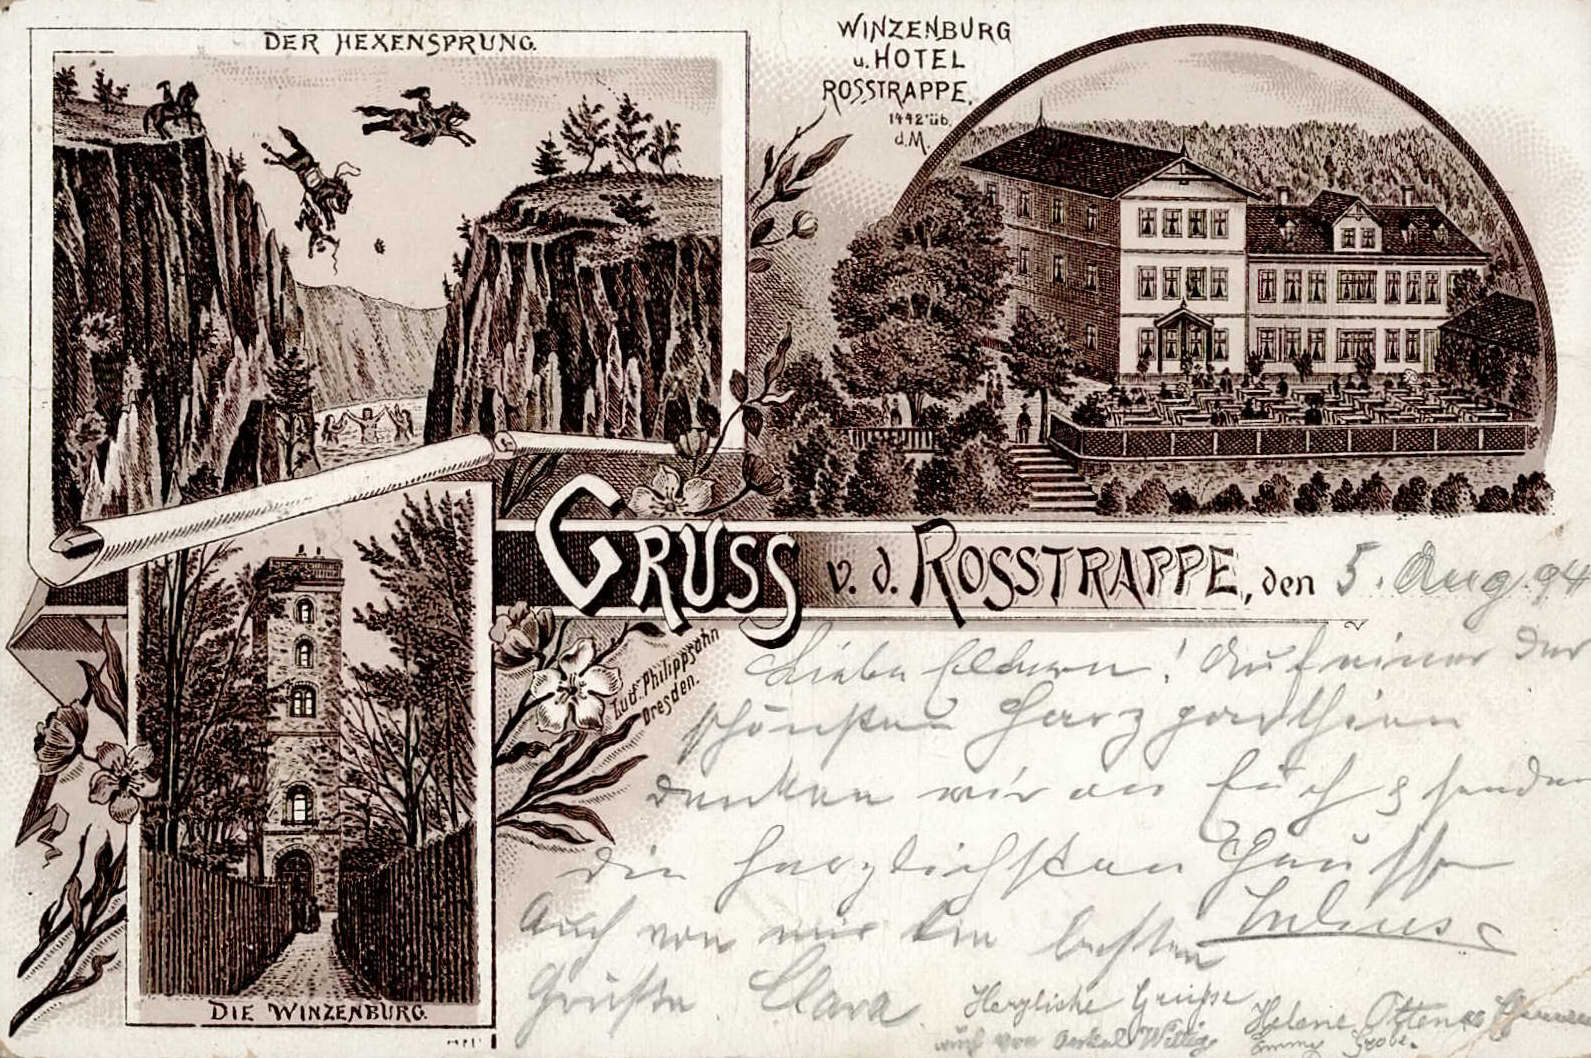 DER HEXENSPRUNG.
WINZENBURG
u. HOTEL
ROSSTRAPPE.
1442' üb.
d. M.
GRUSS v. d. ROSSTRAPPE, den 5. Aug. 94
Lud. Philippsohn
Dresden.
Liebe Eltern! Auf einer der
schönsten Harzparthien
denken wir an Euch & senden
die herzlichsten Grüsse
Julius
Auch von mir die besten
Grüße. Clara
Herzliche Grüsse
auch von Onkel Willig
Helene Otten
Emmy Grobe.
DIE WINZENBURG.